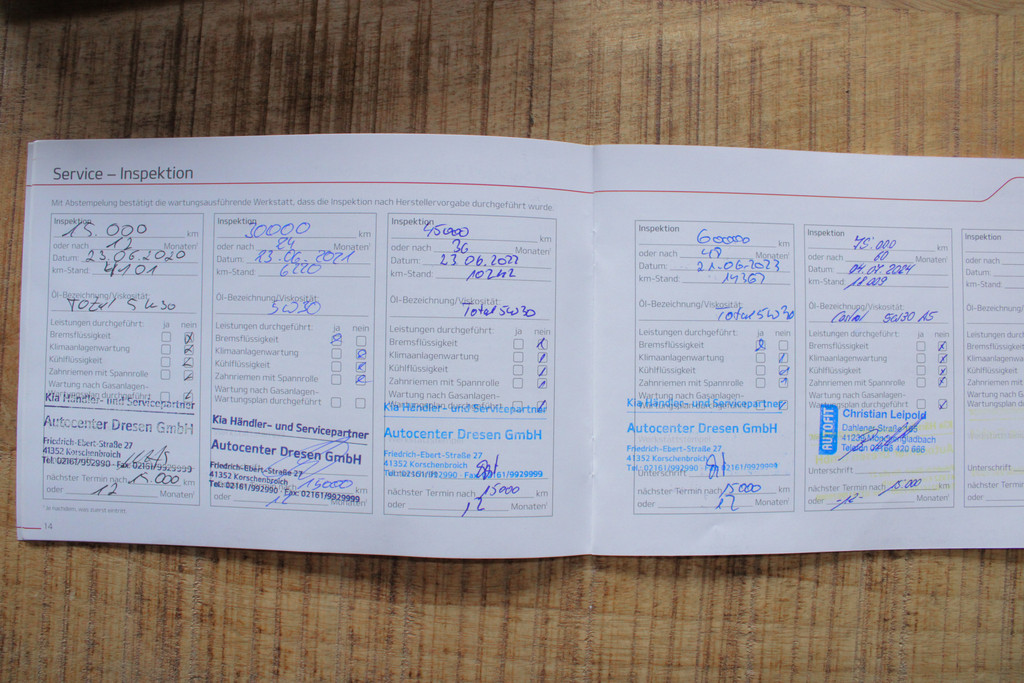 Service – Inspektion
Mit Abstempelung bestätigt die wartungsausführende Werkstatt, dass die Inspektion nach Herstellervorgabe durchgeführt wurde.
Inspektion
15.000 km
oder nach 12 Monaten¹
Datum: 23.06.2020
km-Stand: 4101
Öl-Bezeichnung/Viskosität:
Total 5W30
Leistungen durchgeführt: ja nein
Bremsflüssigkeit
Klimaanlagenwartung
Kühlflüssigkeit
Zahnriemen mit Spannrolle
Wartung nach Gasanlagen-
Kia Händler- und Servicepartner
Autocenter Dresen GmbH
Friedrich-Ebert-Straße 27
41352 Korschenbroich
Tel.: 02161/992990 Fax: 02161/9929999
nächster Termin nach 15.000 km
oder 12 Monaten¹
¹ Je nachdem, was zuerst eintritt.
14
Inspektion
30000 km
oder nach 24 Monaten¹
Datum: 23.06.2021
km-Stand: 6220
Öl-Bezeichnung/Viskosität:
5W30
Leistungen durchgeführt: ja nein
Bremsflüssigkeit
Klimaanlagenwartung
Kühlflüssigkeit
Zahnriemen mit Spannrolle
Wartung nach Gasanlagen-
Wartungsplan durchgeführt
Kia Händler- und Servicepartner
Autocenter Dresen GmbH
Friedrich-Ebert-Straße 27
41352 Korschenbroich
Tel.: 02161/992990 Fax: 02161/9929999
15000 km
oder 12 Monaten¹
Inspektion
45000 km
oder nach 36 Monaten¹
Datum: 23.06.2022
km-Stand: 10242
Öl-Bezeichnung/Viskosität:
Total 5W30
Leistungen durchgeführt: ja nein
Bremsflüssigkeit
Klimaanlagenwartung
Kühlflüssigkeit
Zahnriemen mit Spannrolle
Wartung nach Gasanlagen-
Kia Händler- und Servicepartner
Autocenter Dresen GmbH
Friedrich-Ebert-Straße 27
41352 Korschenbroich
Tel.: 02161/992990 Fax: 02161/9929999
nächster Termin nach 15000 km
oder 12 Monaten¹
Inspektion
600000 km
oder nach 48 Monaten¹
Datum: 21.06.2023
km-Stand: 14367
Öl-Bezeichnung/Viskosität:
Total 5W30
Leistungen durchgeführt: ja nein
Bremsflüssigkeit
Klimaanlagenwartung
Kühlflüssigkeit
Zahnriemen mit Spannrolle
Wartung nach Gasanlagen-
Kia Händler- und Servicepartner
Autocenter Dresen GmbH
Friedrich-Ebert-Straße 27
41352 Korschenbroich
Tel.: 02161/992990 02161/9929999
Unterschrift
nächster Termin nach 15000 km
oder 12 Monaten¹
Inspektion
75.000 km
oder nach 60 Monaten¹
Datum: 04.07.2024
km-Stand: 18.009
Öl-Bezeichnung/Viskosität:
Castrol 5W30 A5
Leistungen durchgeführt: ja nein
Bremsflüssigkeit
Klimaanlagenwartung
Kühlflüssigkeit
Zahnriemen mit Spannrolle
Wartung nach Gasanlagen-
Wartungsplan durchgeführt
AUTOFIT
Christian Leipold
Dahlener Straße
Mönchengladbach
Telefon
Unterschrift
nächster Termin nach 15.000 km
oder -12- Monaten¹
Inspektion
oder nach
Datum:
km-Stand:
Öl-Bezeichnung
Leistungen durch
Bremsflüssigkeit
Klimaanlagenwart
Kühlflüssigkeit
Zahnriemen mit S
Wartung nach Gas
Wartungsplan dur
Unterschrift
nächster Termin
oder